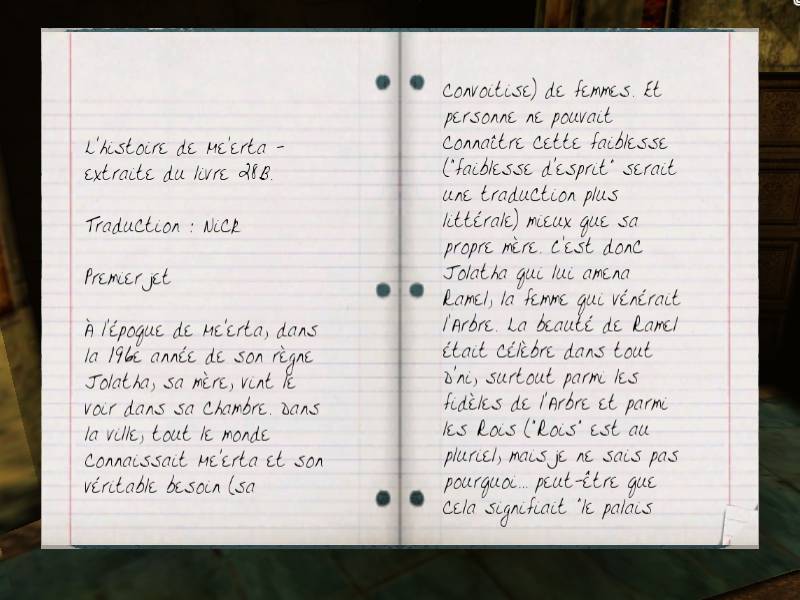 L'histoire de Me'erta -
extraite du livre 28B.
Traduction : Nick
Premier jet
À l'époque de Me'erta, dans
la 196e année de son règne
Jolatha, sa mère, vint le
voir dans sa chambre. Dans
la ville, tout le monde
connaissait Me'erta et son
véritable besoin (sa
convoitise) de femmes. Et
personne ne pouvait
connaître cette faiblesse
("faiblesse d'esprit" serait
une traduction plus
littérale) mieux que sa
propre mère. C'est donc
Jolatha qui lui amena
Ramel, la femme qui vénérait
l'Arbre. La beauté de Ramel
était célèbre dans tout
D'ni, surtout parmi les
fidèles de l'Arbre et parmi
les Rois ("Rois" est au
pluriel, mais je ne sais pas
pourquoi... peut-être que
cela signifiait "le palais